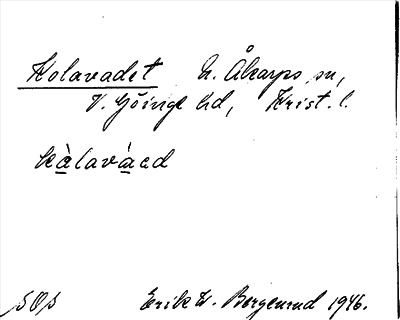 Kolavadet N. Åkarps sn,
V. Göinge hd, Krist. l.
kàlavàed
SOS Erik W. Bergenrud 1946.